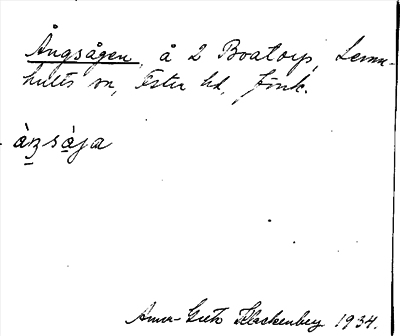 Ångsågen, å 2 Boatorp, Lemn-
hults sn, Östra hd, Jönk.
àŋsàja
Anna-Greta Hackenberg 1934.